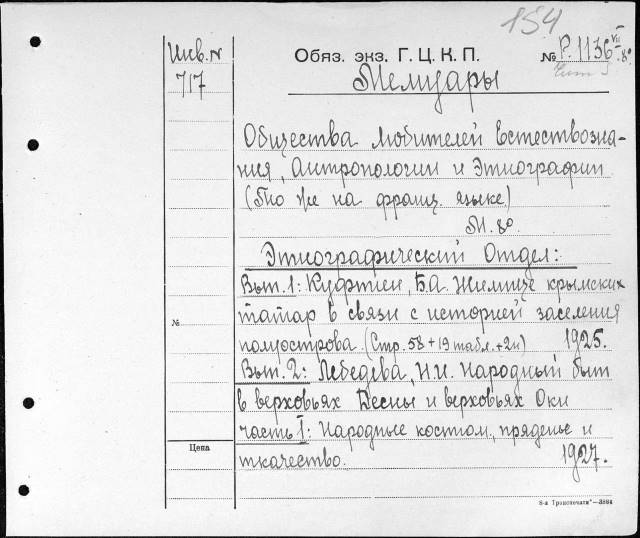 154
Инв. N
717
Обяз. экз. Г. Ц. К. П.
№ P.1136 VII-8º
Мемуары
Общества Любителей Естествозна-
ния, Антропологии и Этнографии
(То же на франц. языке)
М. 8º
Этнографический Отдел:
Вып. 1: Куфтин, Б.А. Жилище крымских
татар в связи с историей заселения
полуострова. (Стр. 58 + 19 табл. + 2н) 1925.
№
Вып. 2: Лебедева, Н.И. Народный быт
в верховьях Десны и верховьях Оки
часть I: Народные костюм, пряденье и
ткачество. 1927.
Цена
8-я Транспечати"—3864